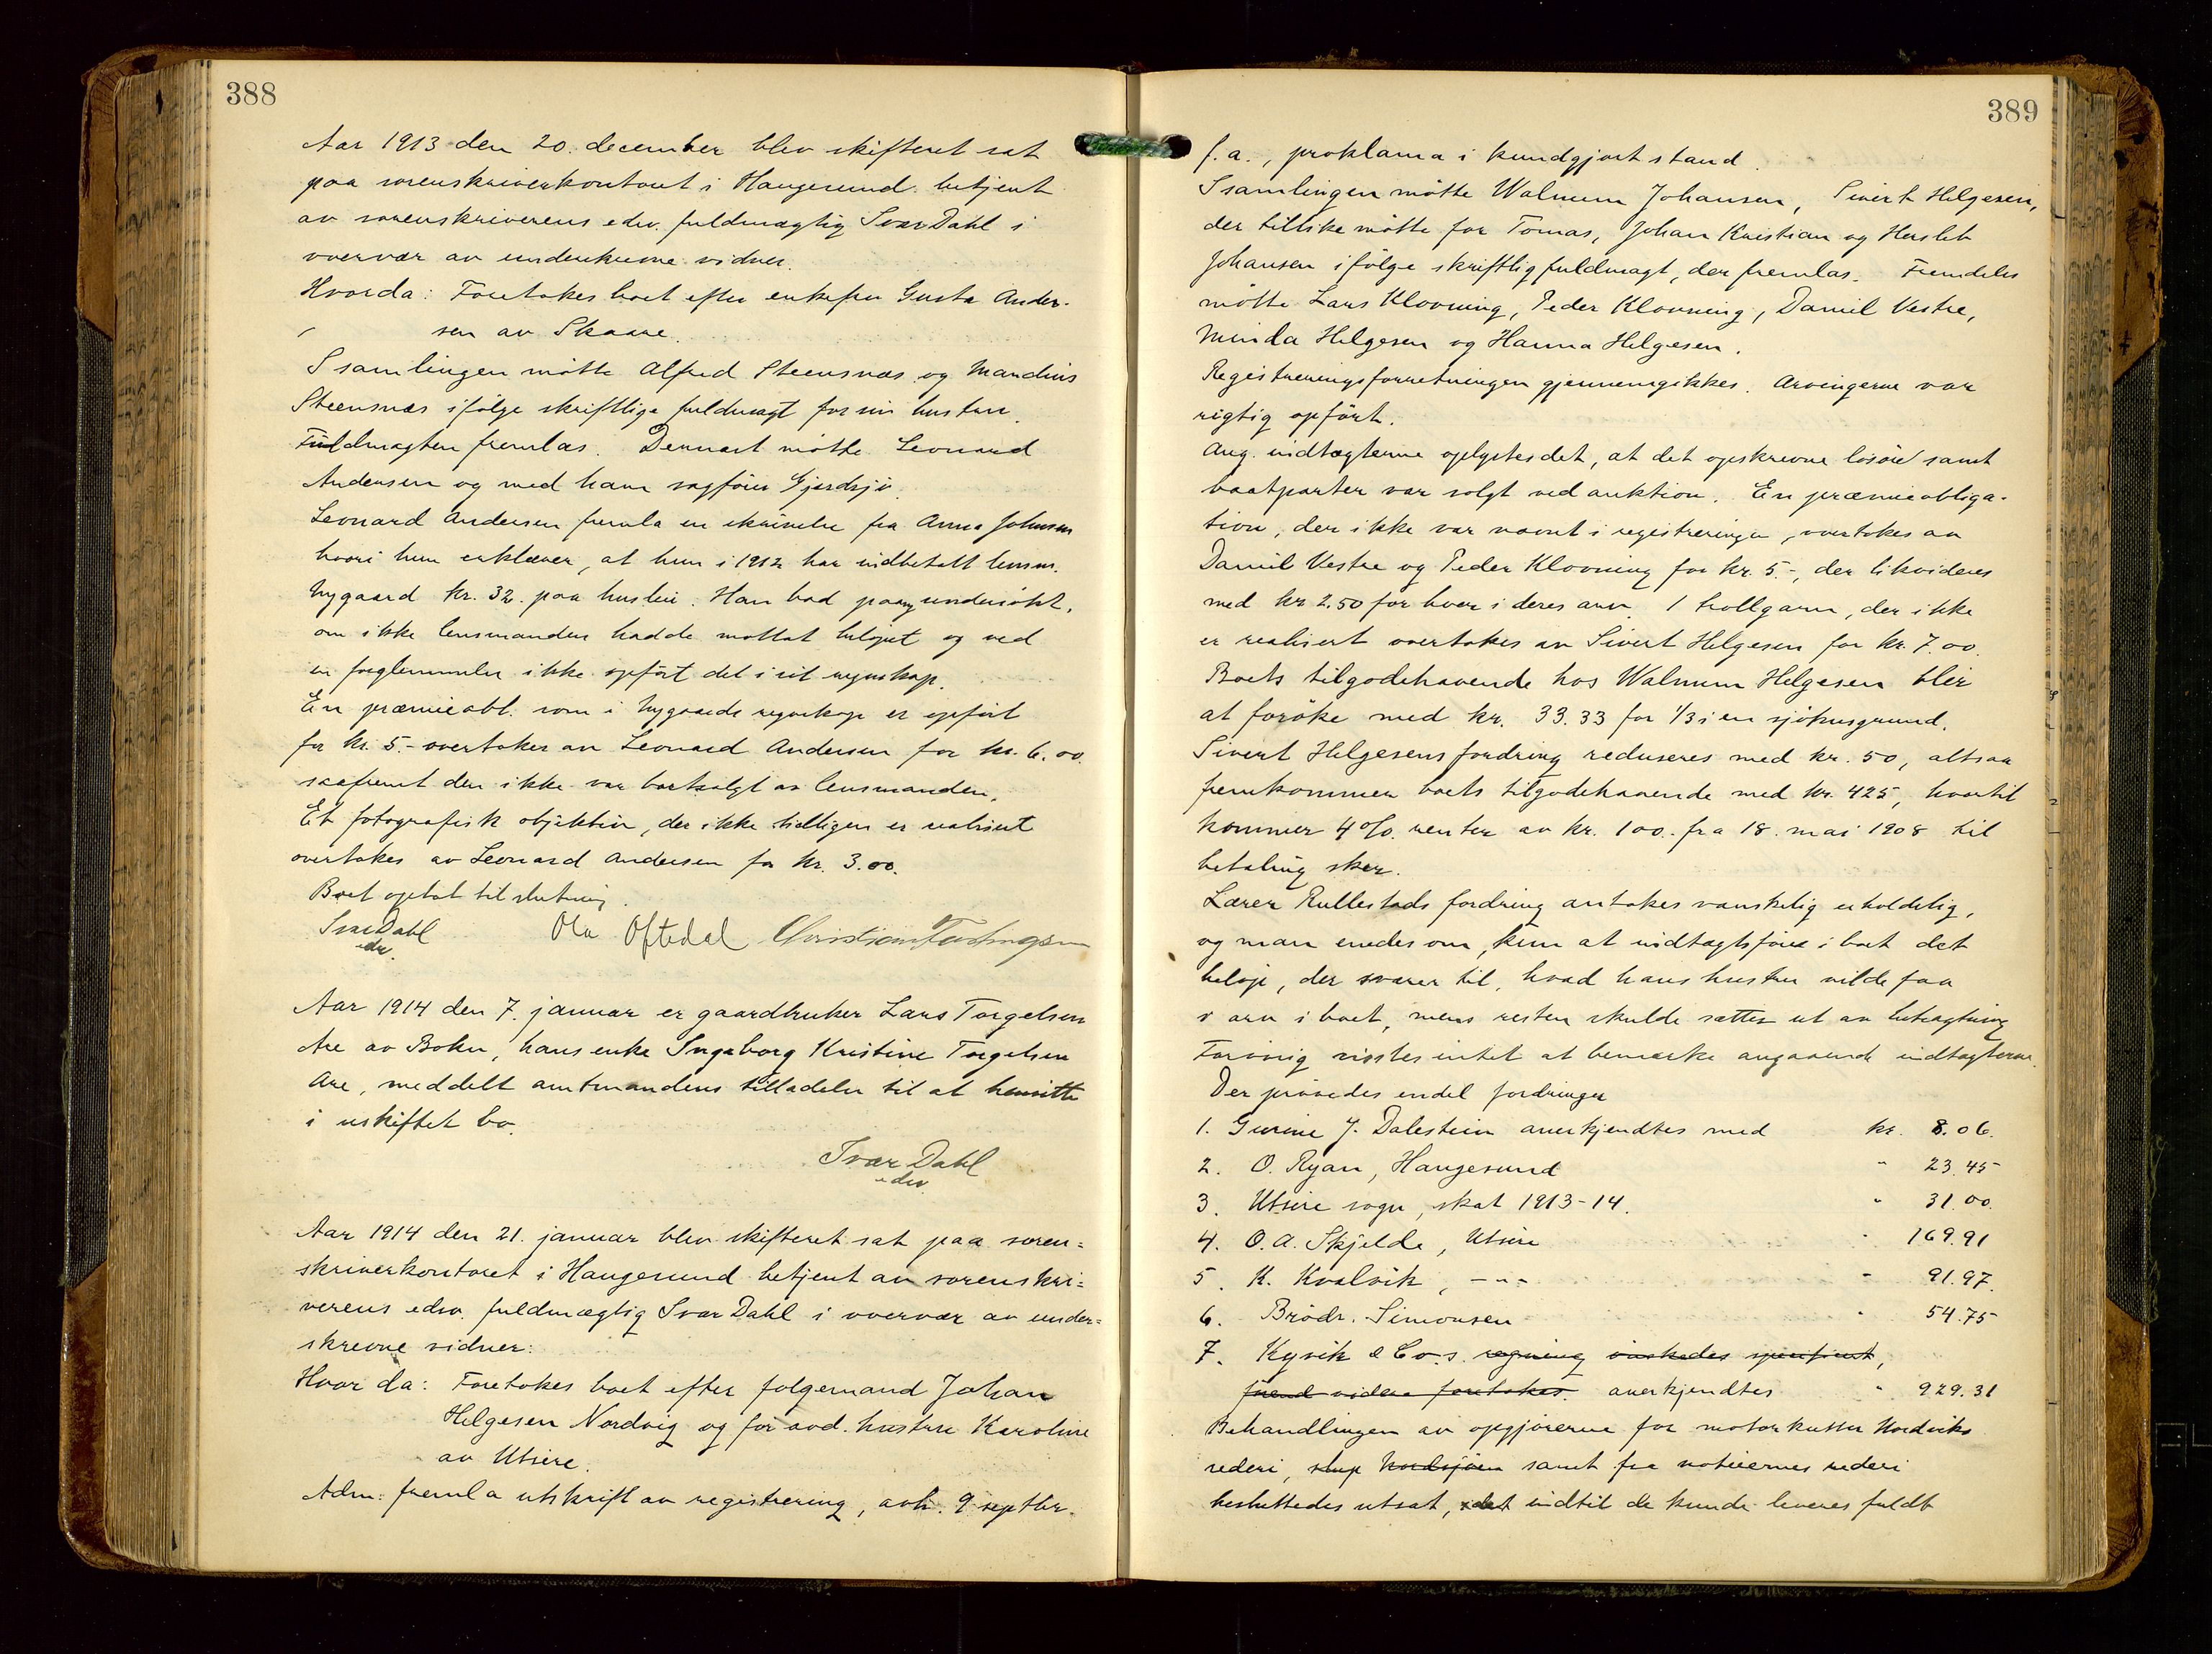 388
Aar 1913 den 20. december blev skifteret sat
paa sorenskriverkontoret i Haugesund betjent
av sorenskriverens edsv. fuldmægtig Ivar Dahl i
overvær av underskrevne vidner.
Hvorda: Foretokes boet efter enkefru Gusta Ander-
sen av Skaare.
I samlingen møtte Alfred Steensnæs og Mandius
Steensnæs ifølge skriftlige fuldmagt for sin hustru.
Fuldmagten fremlas. Dernæst møtte Leonard
Andersen og med ham sagfører Gjerdsjø.
Leonard Andersen fremla en skrivelse fra Anna Johnsen
hvori hun erklærer, at hun i 1912 har indbetalt lensm.
Nygaard kr. 32. paa husleie. Han bad paany undersøkt,
om ikke lensmanden hadde mottat beløpet og ved
en forglemmelse ikke opført det i sit regnskap.
En præmieobl. som i Nygaards regnskap er opført
for kr. 5.- overtokes av Leonard Andersen for kr. 6.00.
saafremt den ikke var bortsolgt av lensmanden.
Et fotografisk objektiv, der ikke tidligere er realisert
overtokes av Leonard Andersen for kr. 3.00.
Boet optat til slutning.
Ivar Dahl
edsv.
Ola Oftedal Christian
Aar 1914 den 7. januar er gaardbruker Lars Torgelsen
Are av Bokn, hans enke Ingeborg Kristine Torgelsen
Are, meddelt amtmandens tilladelse til at hensitte
i uskiftet bo.
Ivar Dahl
edsv.
Aar 1914 den 21. januar blev skifteret sat paa soren=
skriverkontoret i Haugesund betjent av sorenskri=
verens edsv. fuldmægtig Ivar Dahl i overvær av under=
skrevne vidner:
Hvor da: Foretokes boet efter følgemand Johan
Helgesen Nordvig og før avd. hustru Karoline
av Utsire.
Adm: fremla utskrift av registrering, avh. 9 septbr.
389
f.a., proklama i kundgjort stand.
I samlingen møtte Walnum Johansen, Sivert Helgesen,
der tillike møtte for Tomas, Johan Kristian og Hersleb
Johansen ifølge skriftlig fuldmagt, der fremlas. Fremdeles
møtte Lars Klovning, Peder Klovning, Daniel Vestre,
Minda Helgesen og Hanna Helgesen.
Registreringsforretningen gjennemgikkes. Arvingerne var
rigtig opført.
Ang. indtægterne oplystes det, at det opskrevne løsøre samt
baatparter var solgt ved auktion. En præmieobliga-
tion, der ikke var nævnt i registreringen, overtokes av
Daniel Vestre og Peder Klovning for kr. 5.-, der likvideres
med kr 2.50 for hver i deres arv. 1 trollgarn, der ikke
er realisert overtokes av Sivert Helgesen for kr. 7.00.
Boets tilgodehavende hos Walnum Helgesen blir
at forøke med kr. 33.33 for 1/3 i en sjøhusgrund.
Sivert Helgesens fordring reduseres med kr. 50, altsaa
fremkommer boets tilgodehavende med kr. 425, hvortil
kommer 4%. renter av kr. 100. fra 18. mai 1908 til
betaling sker.
Lærer Rullestads fordring antokes vanskelig erholdelig,
og man enedes om, kun at indtægtsføre i boet det
beløp, der svarer til, hvad hans hustru vilde faa
i arv i boet, mens resten skulde sættes ut av betragtning
Forøvrig visstes intet at bemerke angaaende indtægterne.
Der prøvedes endel fordringer
1. Gurine J. Dalestein anerkjendtes med kr. 8.06.
2. O. Ryan, Haugesund " 23.45
3. Utsire sogn, skat 1913-14. " 31.00.
4. O. A. Skjelde, Utsire " 169.91
5. K. Kvalvik, -"- " 91.97.
6. Brødr. Simonsen " 54.75
7. Kyvik & Co.s. regning ønskedes specificert,
førend videre foretokes anerkjendtes " 929.31
Behandlingen av opgjørerne for motorkutter Nordviks
rederi, slup Nordsjøen samt fra notierenes rederi
besluttedes utsat, indtil de kunde leveres fuldt